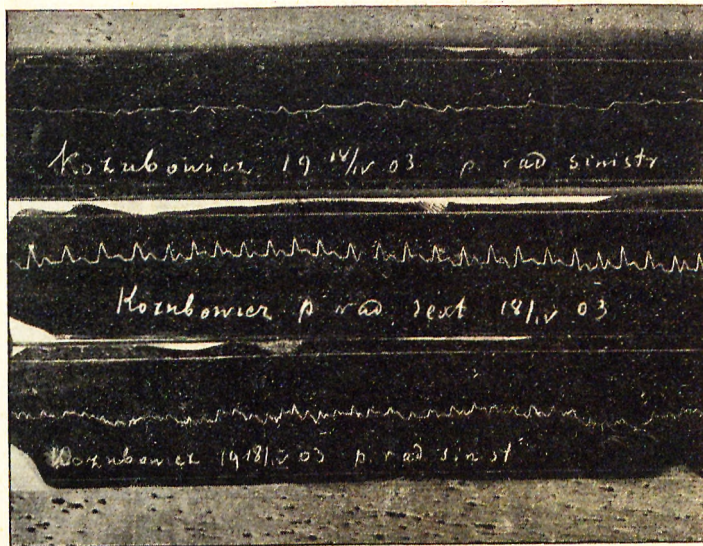 Kozubowicz 19 18/IV 03 p. rad sinistr
Kozubowicz p rad. dext 18/IV 03
Kozubowicz 1918/IV 03 p rad sinist